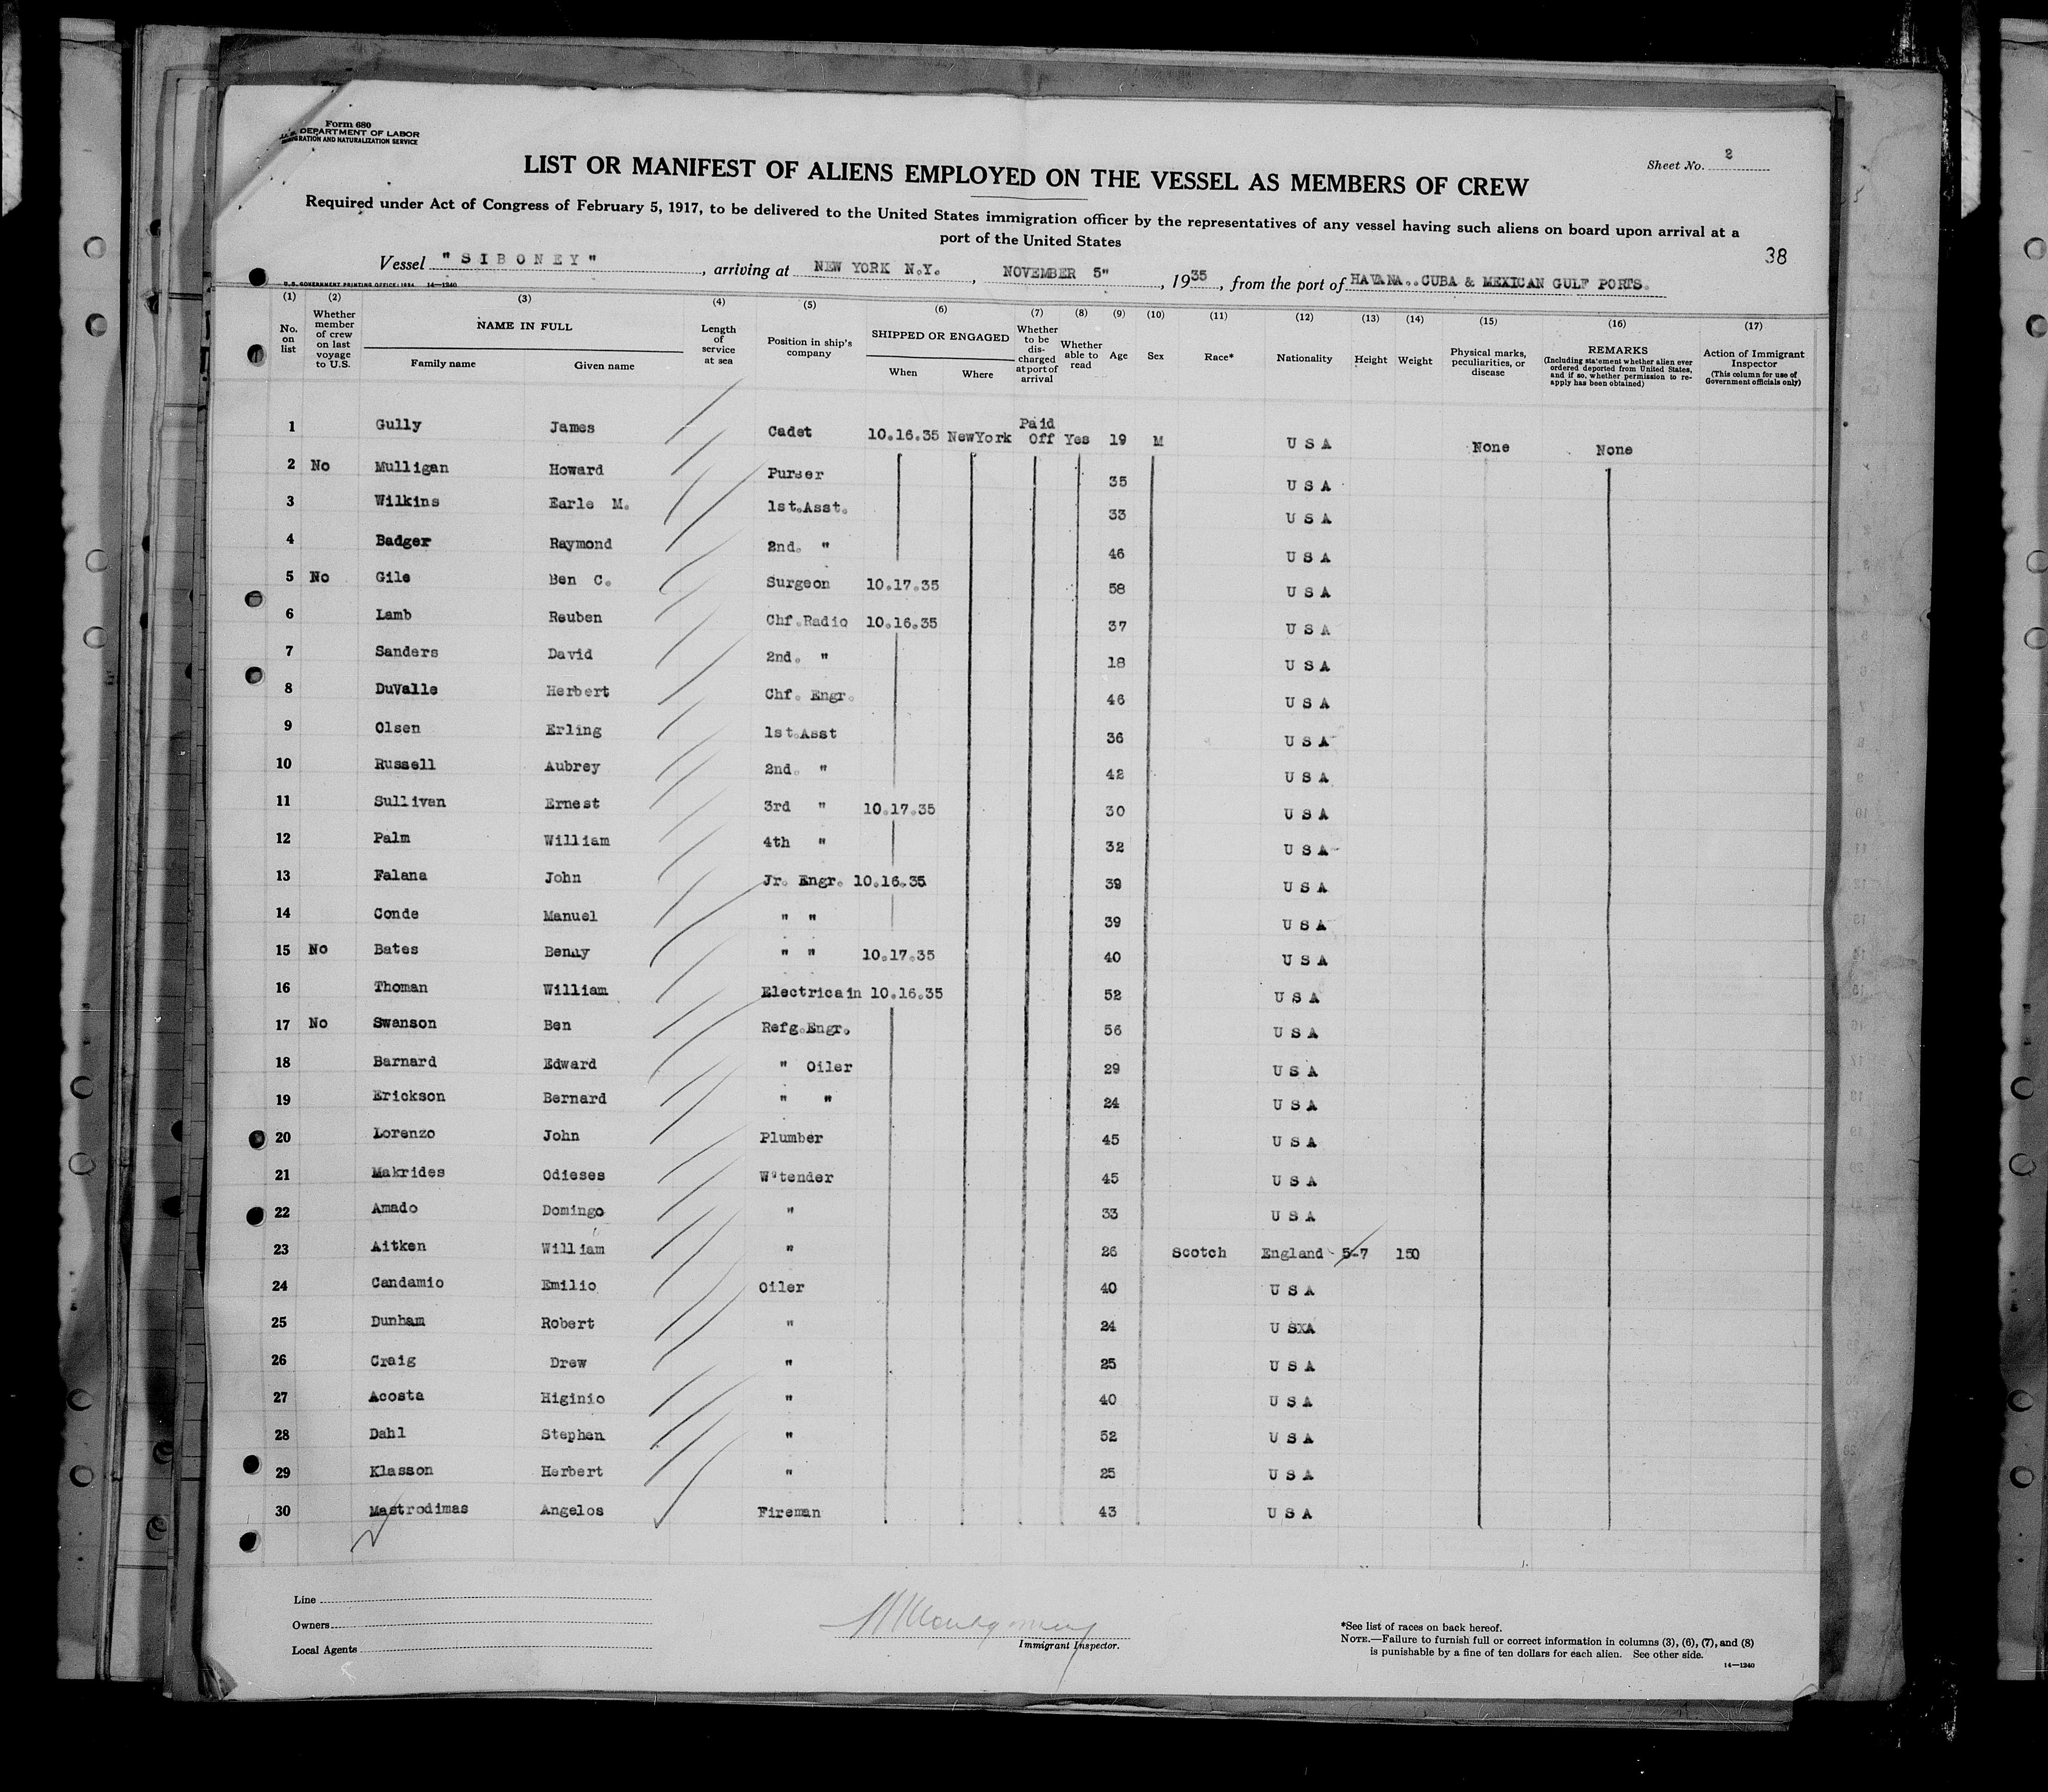 Form 680
U.S. DEPARTMENT OF LABOR
IMMIGRATION AND NATURALIZATION SERVICE
Sheet No. 2
LIST OR MANIFEST OF ALIENS EMPLOYED ON THE VESSEL AS MEMBERS OF CREW
Required under Act of Congress of February 5, 1917, to be delivered to the United States immigration officer by the representatives of any vessel having such aliens on board upon arrival at a
port of the United States
38
Vessel "SIBONEY", arriving at NEW YORK N.Y., NOVEMBER 5", 1935, from the port of HAVANA..CUBA & MEXICAN GULF PORTS.
U.S. GOVERNMENT PRINTING OFFICE: 1934 14—1240
(1) (2) (3) (4) (5) (6) (7) (8) (9) (10) (11) (12) (13) (14) (15) (16) (17)
No. on list
Whether member of crew on last voyage to U.S.
NAME IN FULL
Family name
Given name
Length of service at sea
Position in ship's company
SHIPPED OR ENGAGED
When
Where
Whether to be discharged at port of arrival
Whether able to read
Age
Sex
Race*
Nationality
Height
Weight
Physical marks, peculiarities, or disease
REMARKS
(Including statement whether alien ever ordered deported from United States, and if so, whether permission to reapply has been obtained)
Action of Immigrant Inspector
(This column for use of Government officials only)
1 Gully James Cadet 10.16.35 NewYork Paid Off Yes 19 M U S A None None
2 No Mulligan Howard Purser 35 U S A
3 Wilkins Earle M. 1st.Asst. 33 U S A
4 Badger Raymond 2nd. " 46 U S A
5 No Gile Ben C. Surgeon 10.17.35 58 U S A
6 Lamb Reuben Chf.Radio 10.16.35 37 U S A
7 Sanders David 2nd. " 18 U S A
8 DuValle Herbert Chf. Engr. 46 U S A
9 Olsen Erling 1st.Asst 36 U S A
10 Russell Aubrey 2nd. " 42 U S A
11 Sullivan Ernest 3rd " 10.17.35 30 U S A
12 Palm William 4th " 32 U S A
13 Falana John Jr. Engr. 10.16.35 39 U S A
14 Conde Manuel " " 39 U S A
15 No Bates Benny " " 10.17.35 40 U S A
16 Thoman William Electricain 10.16.35 52 U S A
17 No Swanson Ben Refg.Engr. 56 U S A
18 Barnard Edward " Oiler 29 U S A
19 Erickson Bernard " " 24 U S A
20 Lorenzo John Plumber 45 U S A
21 Makrides Odieses W'tender 45 U S A
22 Amado Domingo " 33 U S A
23 Aitken William " 26 Scotch England 5-7 150
24 Candamio Emilio Oiler 40 U S A
25 Dunham Robert " 24 U SXA
26 Craig Drew " 25 U S A
27 Acosta Higinio " 40 U S A
28 Dahl Stephen " 52 U S A
29 Klasson Herbert " 25 U S A
30 Mastrodimas Angelos Fireman 43 U S A
Line
Owners
Local Agents
Montgomery
Immigrant Inspector.
*See list of races on back hereof.
NOTE.—Failure to furnish full or correct information in columns (3), (6), (7), and (8)
is punishable by a fine of ten dollars for each alien. See other side.
14—1240